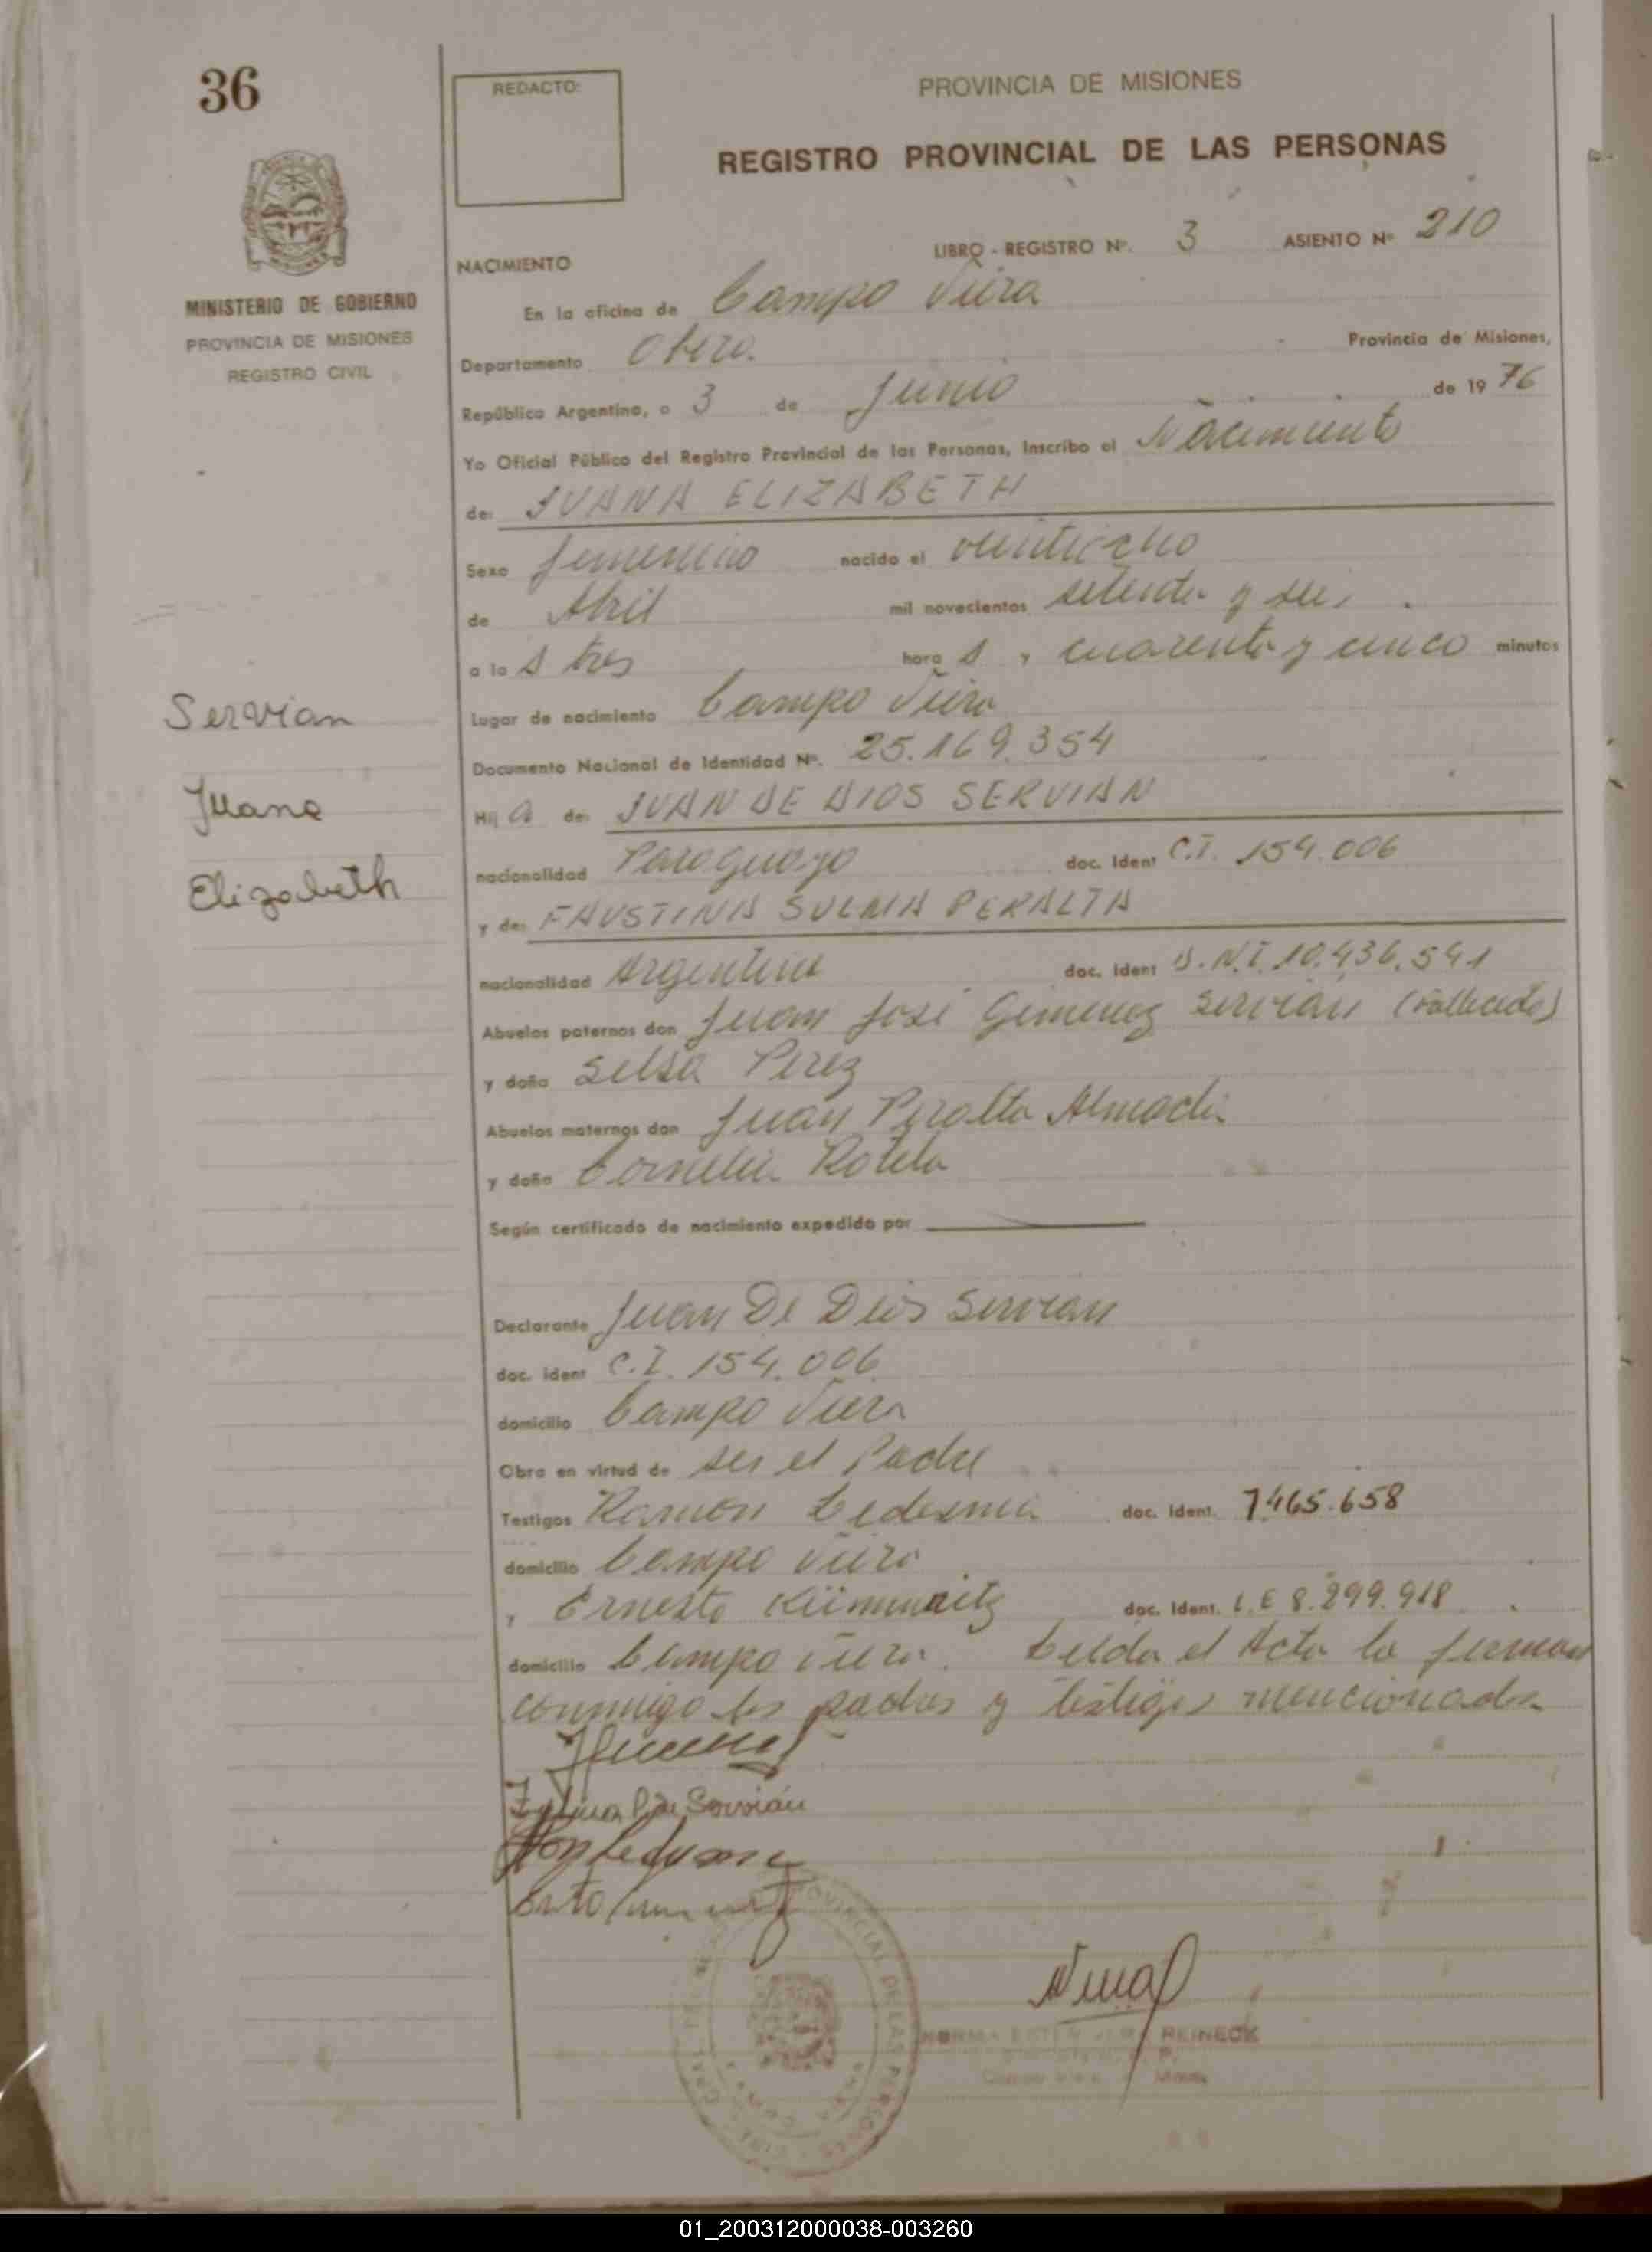 36
REDACTO:
PROVINCIA DE MISIONES
REGISTRO PROVINCIAL DE LAS PERSONAS
LIBRO - REGISTRO Nº. 3 ASIENTO Nº 210
NACIMIENTO
MINISTERIO DE GOBIERNO
PROVINCIA DE MISIONES
REGISTRO CIVIL
En la oficina de Campo Viera
Departamento Obera. Provincia de Misiones,
República Argentina, a 3 de Junio de 19 76
Yo Oficial Público del Registro Provincial de las Personas, Inscribo el Nacimiento
de: JUANA ELIZABETH
Sexo femenino nacido el veintiocho
de Abril mil novecientos setenta y seis.
a la s tres hora s, cuarenta y cinco minutos
Lugar de nacimiento Campo Viera
Documento Nacional de Identidad Nº. 25.169.354
Hij a de: JUAN DE DIOS SERVIAN
nacionalidad Paraguayo doc. Ident C.I. 154.006
y de: FAUSTINA SULMA PERALTA
nacionalidad Argentina doc. Ident D.N.I. 10.436.541
Abuelos paternos don Juan José Gimenez Servian (Fallecido)
y doña Selsa Perez
Abuelos maternos don Juan Peralta Almada
y doña Cornelia Rotela
Según certificado de nacimiento expedido por
Declarante Juan De Dios Servian
doc. Ident C.I. 154.006
domicilio Campo Viera
Obra en virtud de ser el Padre
Testigos Ramon Ledesma doc. Ident. 7.465.658
domicilio Campo Viera
, Ernesto doc. Ident. L.E 8.299.918
domicilio Campo Viera. Leida el Acta la firman
conmigo los padres y testigos mencionados
Servian
Juana
Elizabeth
Servián
PROVINCIAL DE LAS PERSONAS
NORMA REINECK
01_200312000038-003260